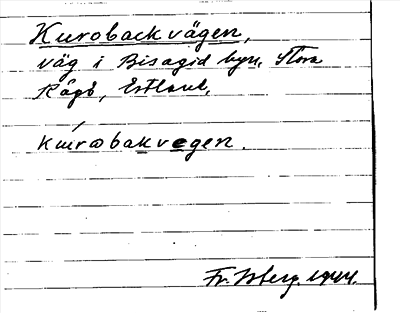 Kurobackvägen,
väg i Bisagid byn, Stora
Rågö, Estland.
kúrωbakvegen.
Fr. Isberg. 1944.